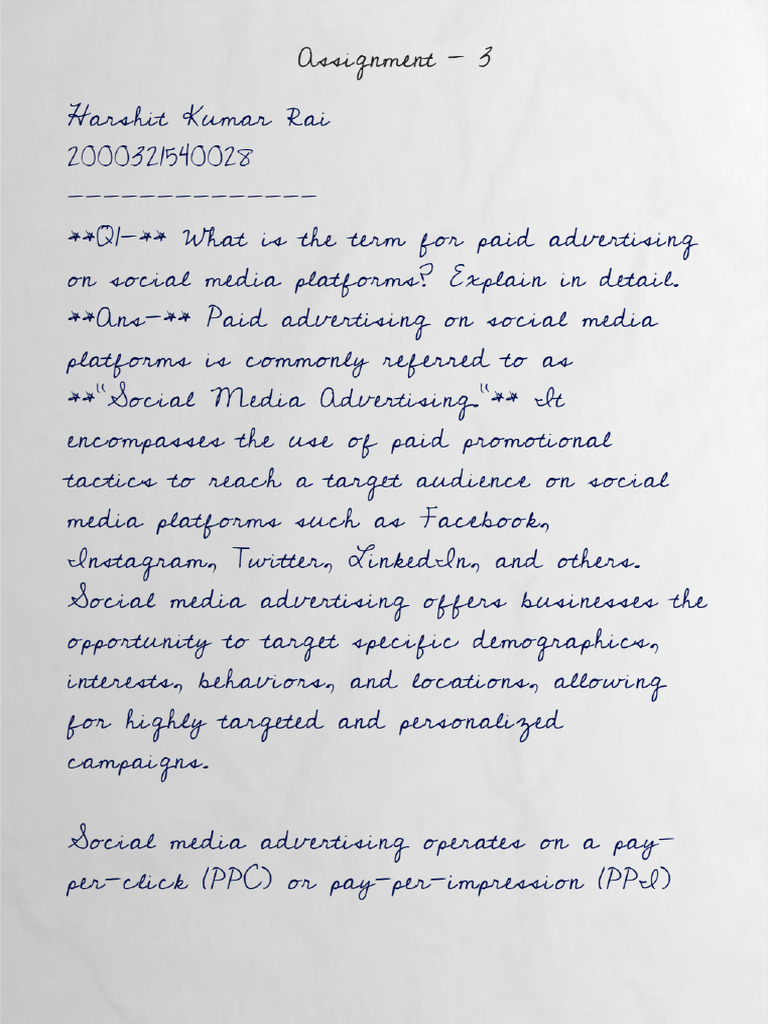 Assignment - 3
Harshit Kumar Rai
2000321540028
--------------
**Q1-** What is the term for paid advertising
on social media platforms? Explain in detail.
**Ans-** Paid advertising on social media
platforms is commonly referred to as
**"Social Media Advertising."** It
encompasses the use of paid promotional
tactics to reach a target audience on social
media platforms such as Facebook,
Instagram, Twitter, LinkedIn, and others.
Social media advertising offers businesses the
opportunity to target specific demographics,
interests, behaviors, and locations, allowing
for highly targeted and personalized
campaigns.
Social media advertising operates on a pay-
per-click (PPC) or pay-per-impression (PPI)